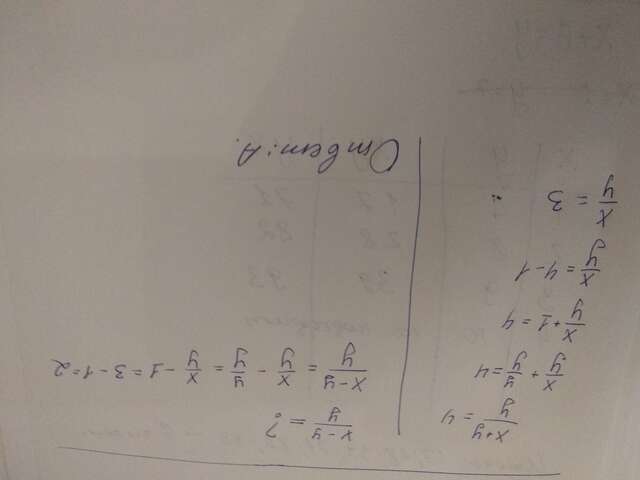 (x+y)/y = 4
x/y + y/y = 4
x/y + 1 = 4
x/y = 4 - 1
x/y = 3
(x-y)/y = ?
(x-y)/y = x/y - y/y = x/y - 1 = 3 - 1 = 2
Ответ: А.